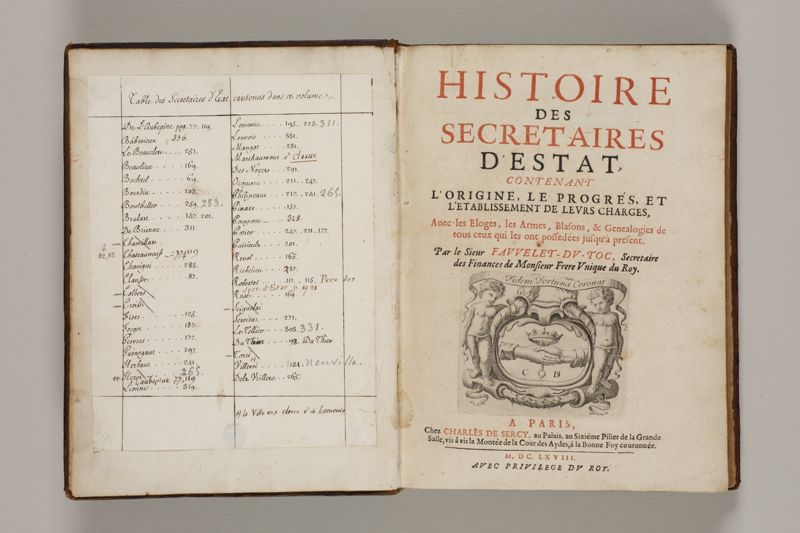 Table des Secretaires d'Estat contenus dans ce volume.
De L'Aubespine pag. 77. 119.
336.
Le Beauclerc .... 251.
Beaulieu .... 169.
Bochetel .... 69.
Bourdin .... 103.
Bouthillier .... 259. 283.
Brulart .... 157. 201.
De Brienne .... 311.
Chantillan
82.81 Chasteauneuf 77 119
Chavigni .... 285.
Clausse .... 87.
Colbert
Croissi
Fises .... 125.
Forget .... 187.
Gesvres .... 177.
Guenegaut .... 297.
Herbaut .... 241.
265.
L'aubépine 77, 119
Lionne .... 319.
Lomenie .... 195. 225. 311.
Louvois .... 331.
Mangot .... 231.
Marchaumont v. Clausse
Des Noyers .... 291.
Ocquerre .... 211. 247.
Philipeaux .... 217. 241. 265.
Pinart .... 157.
Pompone .... 328.
Potier .... 247. 211. 177.
Puisieulx .... 201.
Revol .... 165.
Richelieu .... 237.
Robertet .... 111. 115. Pere
Ruzé .... 169.
Seignelai
Servien .... 271.
Le Tellier .... 303. 331.
Du Thier .... 93. Du Thier
Torci
Villeroi .... 131. Neuville.
De la Vrillere .... 265.
HISTOIRE
DES
SECRETAIRES
D'ESTAT,
CONTENANT
L'ORIGINE, LE PROGRES, ET
L'ETABLISSEMENT DE LEVRS CHARGES,
Auec les Eloges, les Armes, Blasons, & Genealogies de
tous ceux qui les ont possedées jusqu'à present.
Par le Sieur FAVVELET-DV-TOC, Secretaire
des Finances de Monsieur Frere Vnique du Roy.
Fidem Fortuna Coronat
C 19
A PARIS,
Chez CHARLES DE SERCY, au Palais, au Sixiéme Pilier de la Grande
Salle, vis à vis la Montée de la Cour des Aydes, à la Bonne Foy couronnée.
M. DC. LXVIII.
AVEC PRIVILEGE DV ROY.